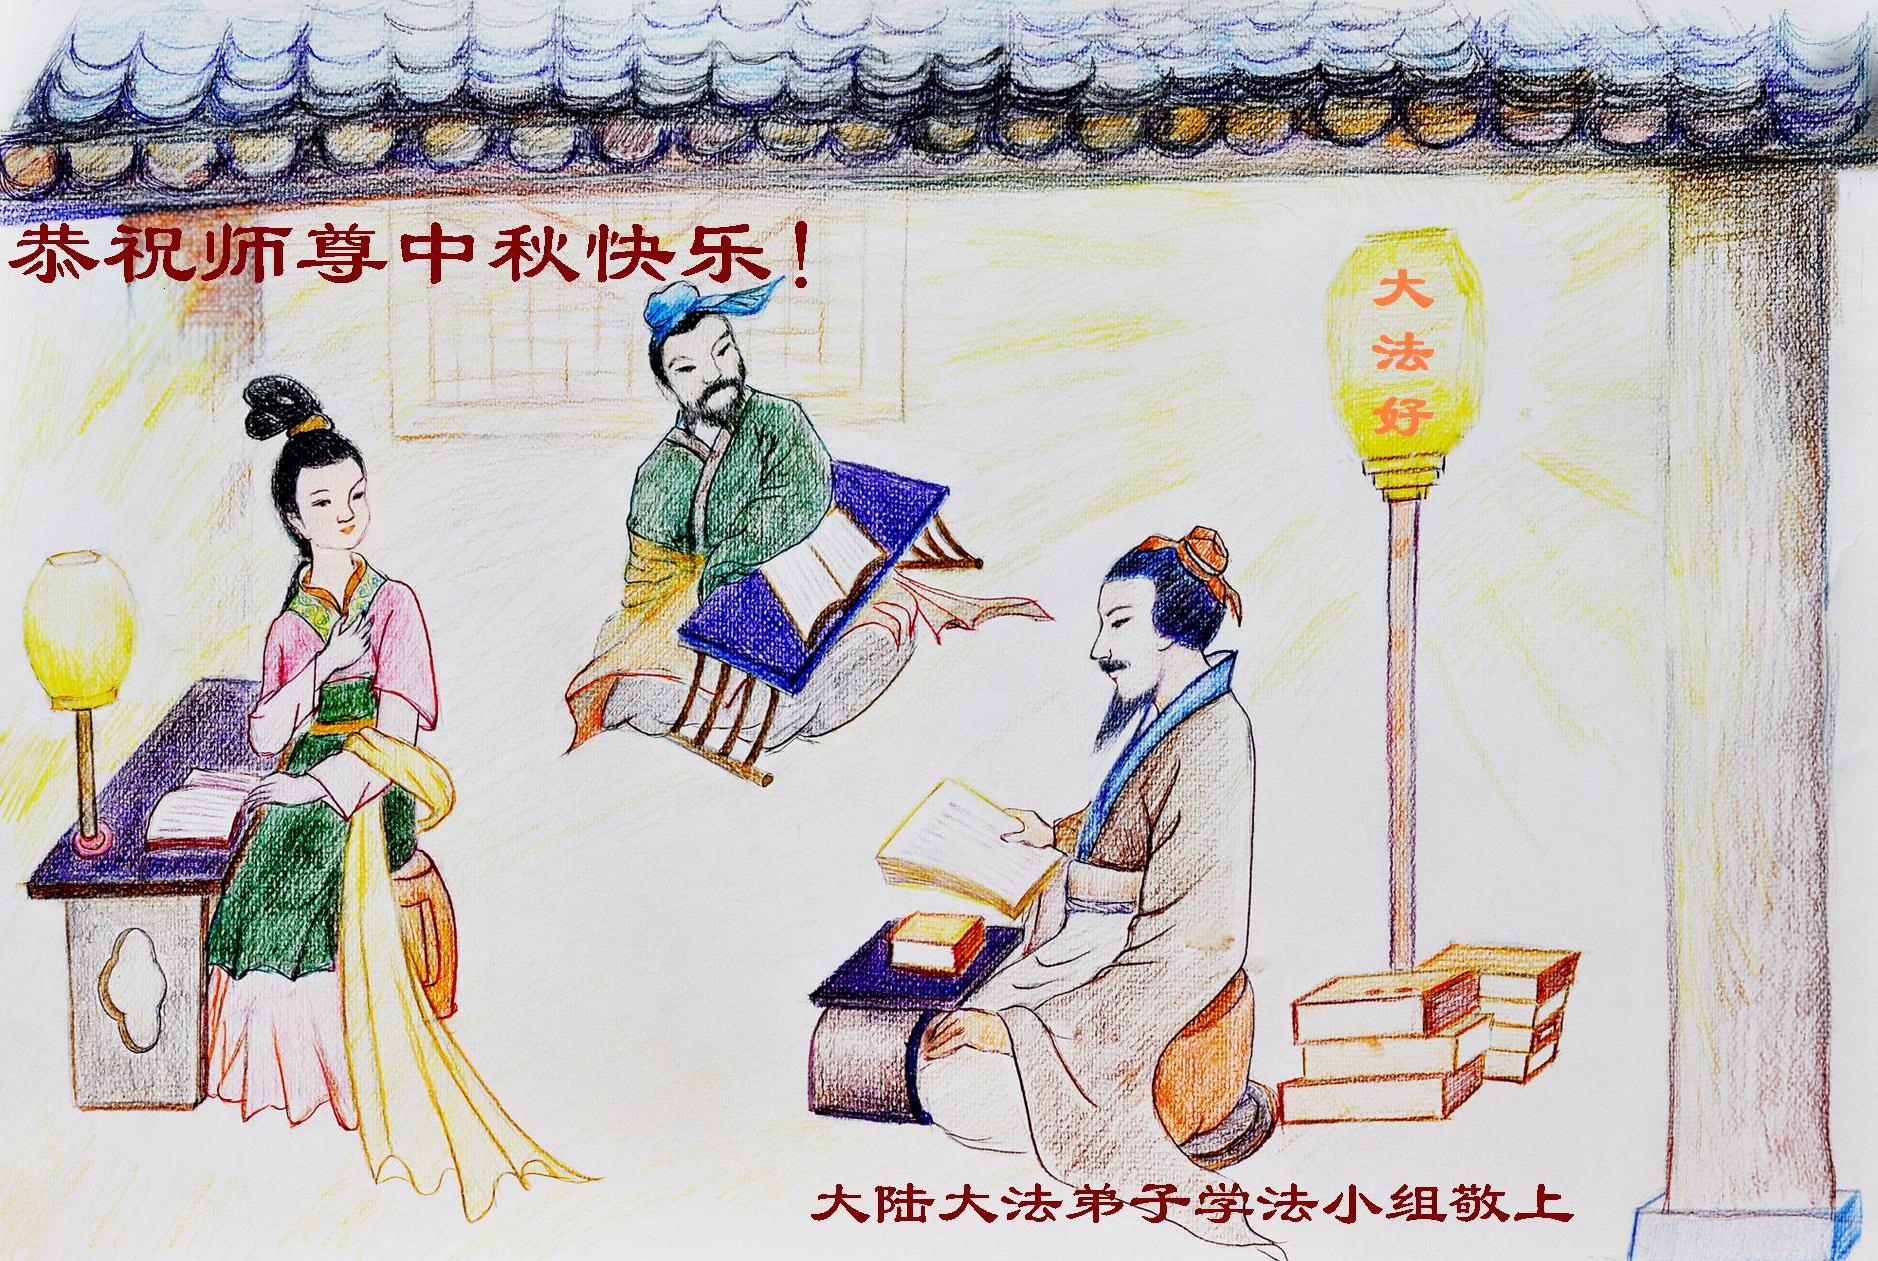 恭祝师尊中秋快乐！
大法好
大陆大法弟子学法小组敬上